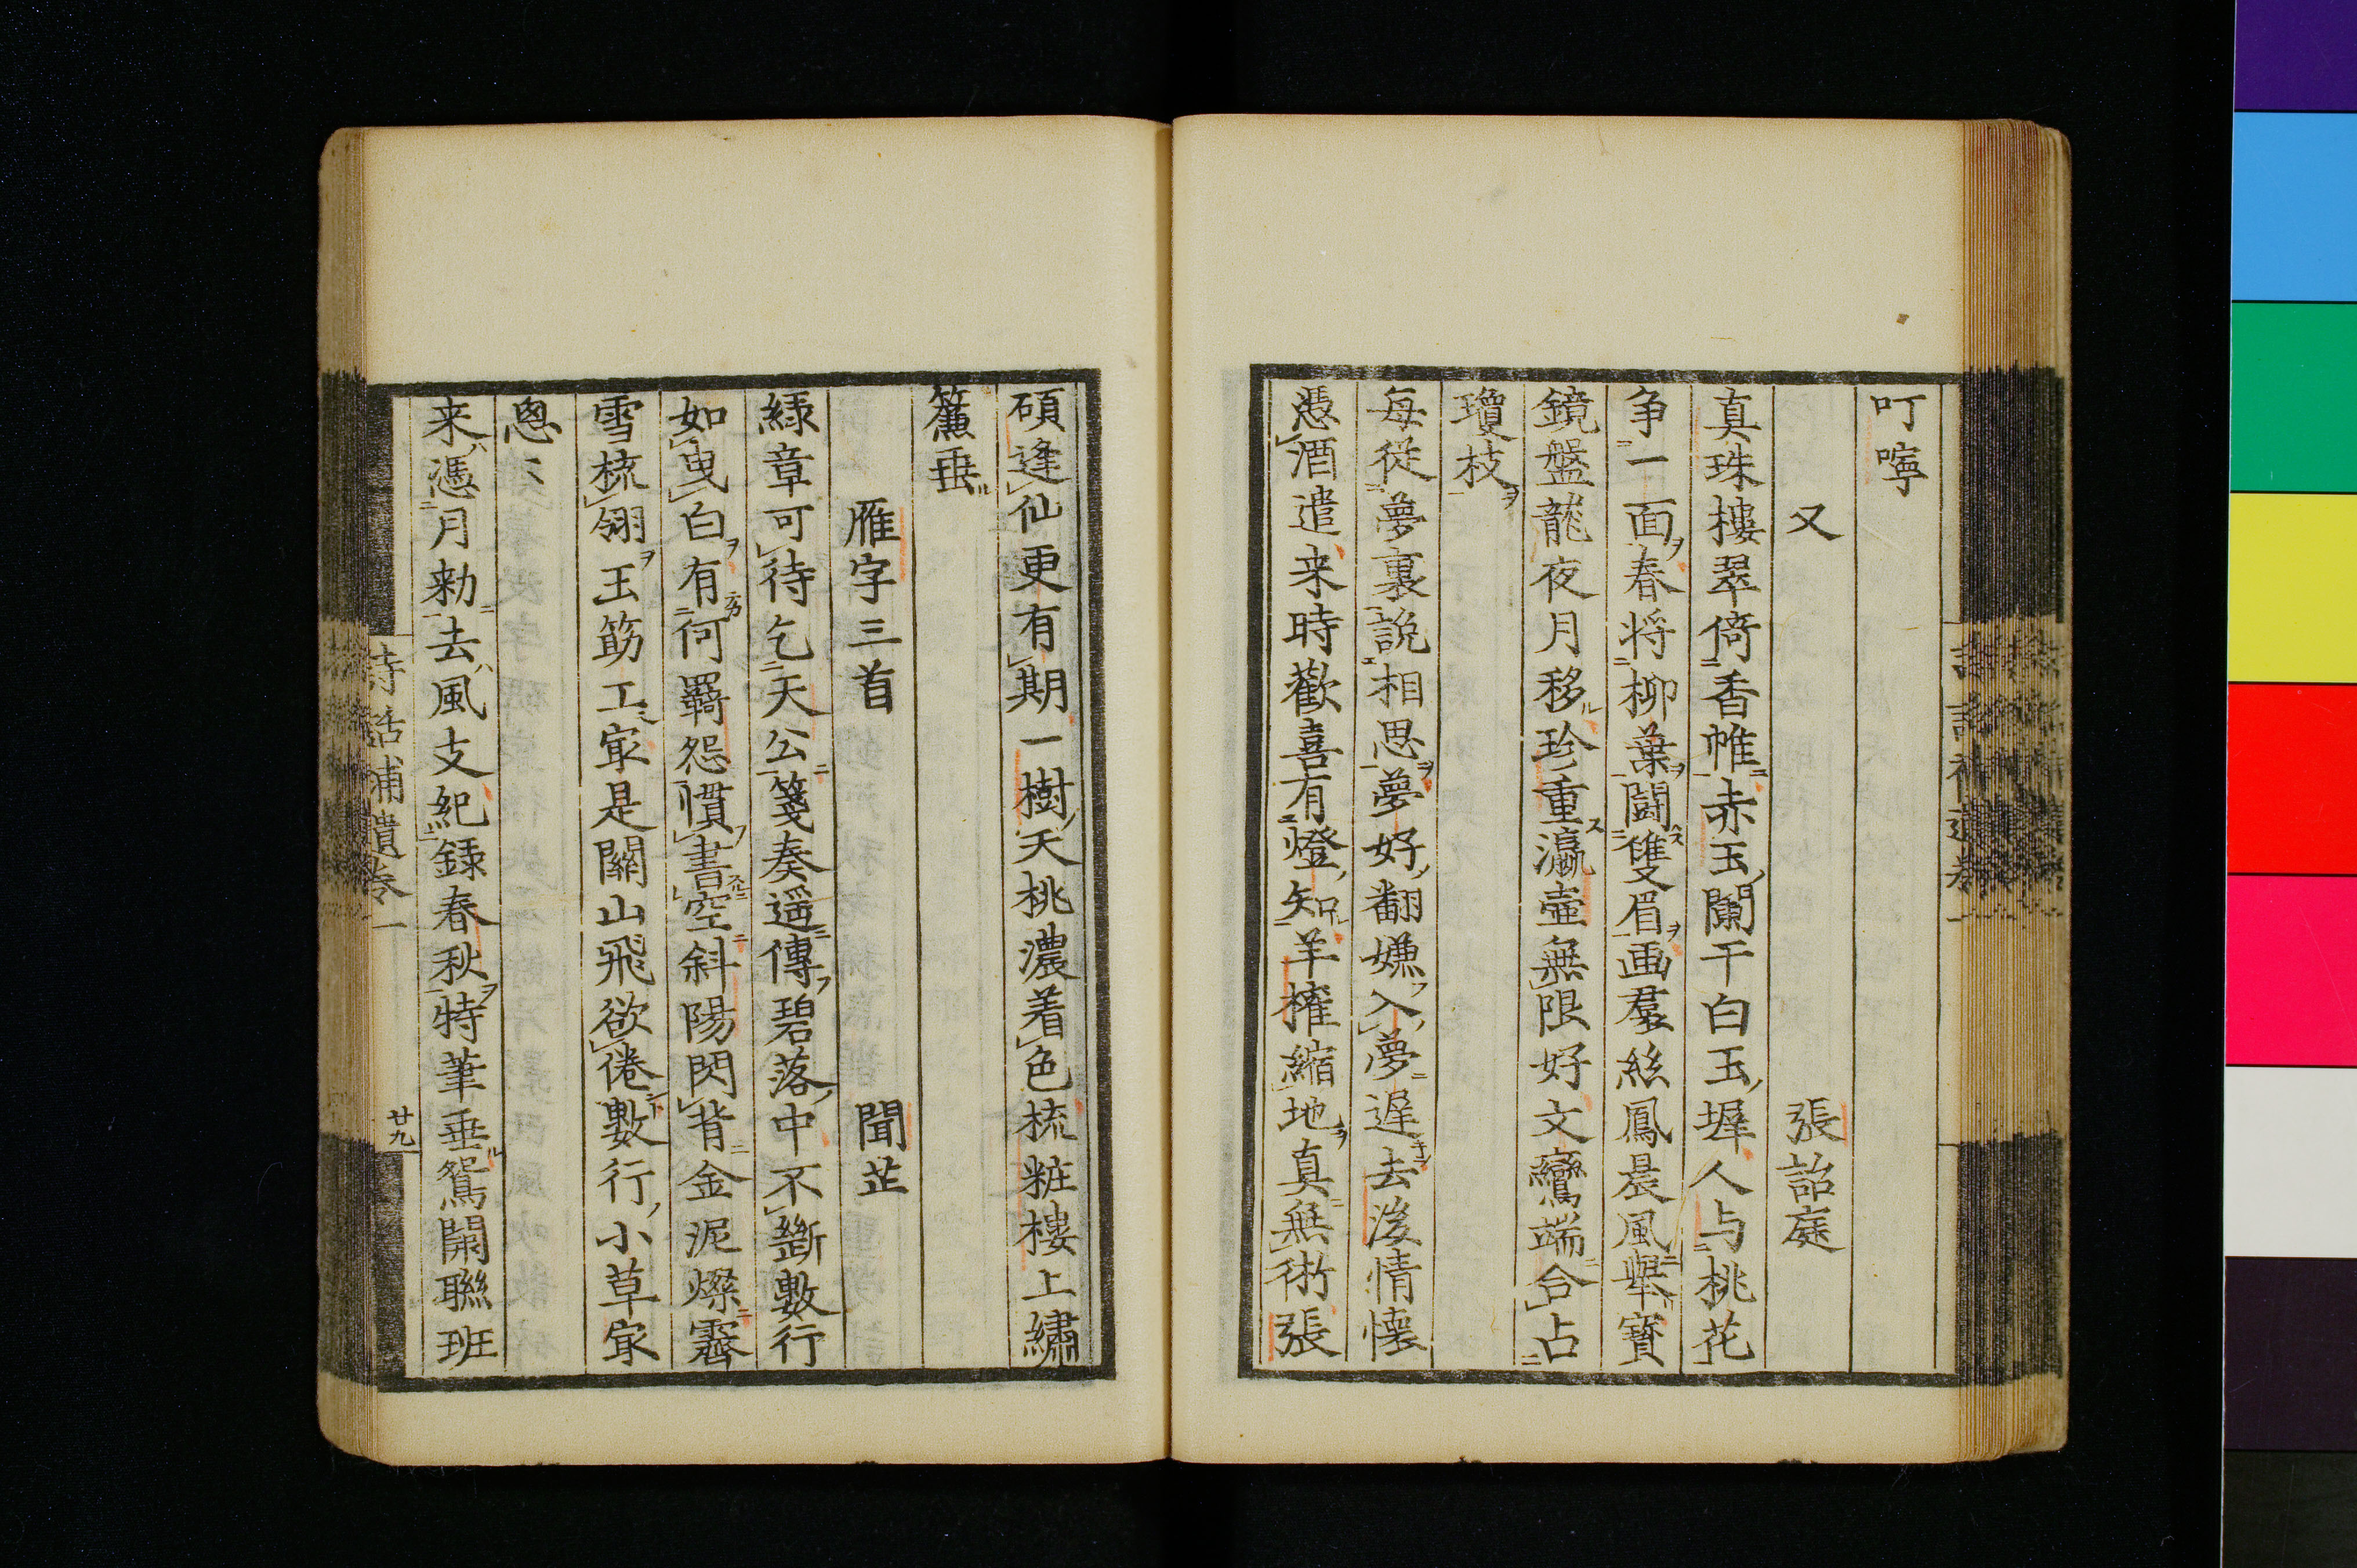 叮嚀
又 張詒庭
真珠樓翠倚香帷赤玉闌干白玉墀人与桃花
争一面春将柳葉闘雙眉画羣絲鳳晨風舉寶
鏡盤龍夜月移珍重瀛壷無限好文鸞端合占
瓊枝
每從夢裏説相思夢好翻嫌入夢遲去後情懷
憑酒遣来時歡喜有燈知羊搉縮地真無術張
碩逢仙更有期一樹夭桃濃着色梳粧樓上繡
簾垂
雁字三首 聞芷
緑章可待乞天公箋奏遥傳碧落中不斷數行
如曳白有何羇怨慣書空斜陽閃背金泥燦霽
雪梳翎玉筯工㝡是關山飛欲倦數行小草㝡
怱〻
来憑月勑去風支紀録春秋特筆垂鴛閑聯班
詩話補遺卷一
廿九